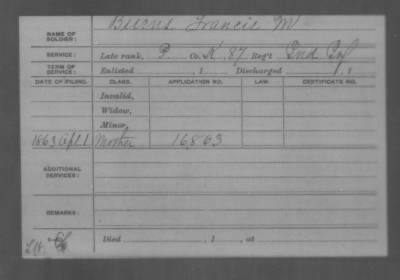 NAME OF SOLDIER: Burns Francis M
SERVICE: Late rank, P. Co. K, 87 Reg't Ind Inf
TERM OF SERVICE: Enlisted , 1 Discharged , 1
DATE OF FILING. CLASS. APPLICATION NO. LAW. CERTIFICATE NO.
Invalid,
Widow,
Minor,
1863 Apl. 1 Mother 16,863
ADDITIONAL SERVICES:
REMARKS:
Died , 1 , at